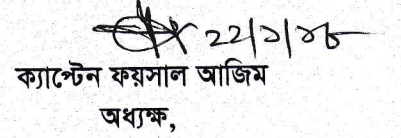 ২২/১/১৮
ক্যাপ্টেন ফয়সাল আজিম
অধ্যক্ষ,